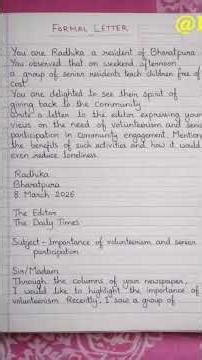 FORMAL LETTER
@
You are Radhika a resident of Bharatpura
You observed that on weekend afternoon
a group of senior residents teach children free of
cost
You are delighted to see their spirit of
giving back to the community
Write a letter to the editor expressing your
views on the need of volunteerism and senior
participation in community engagement. Mention
the benefits of such activities and how it would
even reduce loneliness.
Radhika
Bharatpura
8 March 2026
The Editor
The Daily Times
Subject - Importance of volunteerism and senior
participation
Sir/Madam
Through the columns of your newspaper,
I would like to highlight the importance of
volunteerism. Recently, I saw a group of